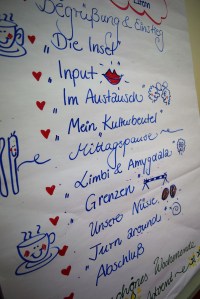 Begrüßung & Einstieg
"Die Insel"
Input
Im Austausch
"Mein Kulturbeutel"
Mittagspause
"Limbi & Amygdala
"Grenzen"
Unsere Nüsse
"Turn around"
Abschluß